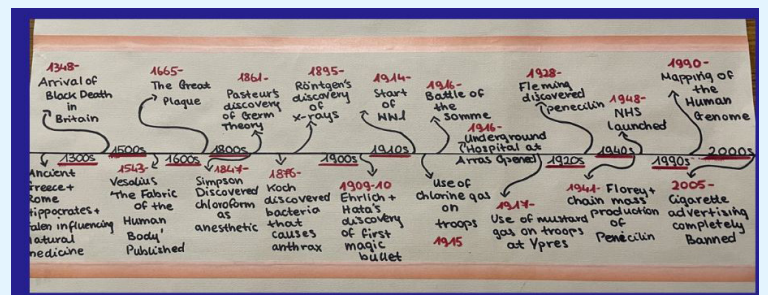 1348-
Arrival of
Black Death
in
Britain
1665-
The Great
Plague
1861-
Pasteur's
discovery
of Germ
Theory
1895-
Röntgen's
discovery
of
x-rays
1914-
Start
of
WW1
1916-
Battle of
the
Somme
1916-
Underground
Hospital at
Arras Opened
1928-
Fleming
discovered
penecilin
1948-
NHS
launched
1990-
Mapping of
the
Human
Genome
1300s
1500s
1600s
1800s
1900s
1910s
1920s
1940s
1990s
2000s
Ancient
Greece+
Rome
Hippocrates+
Galen influencing
natural
medicine
1543-
Vesalius
'The Fabric
of the
Human
Body'
Published
1847-
Simpson
Discovered
chloroform
as
anesthetic
1876-
Koch
discovered
bacteria
that
causes
anthrax
1909-10
Ehrlich +
Hata's
discovery
of first
magic
bullet
Use of
chlorine gas
on
troops
1915
1917-
Use of mustard
gas on troops
at Ypres
1941- Florey+
chain mass
production
of
Penicilin
2005-
Cigarette
advertising
completely
Banned